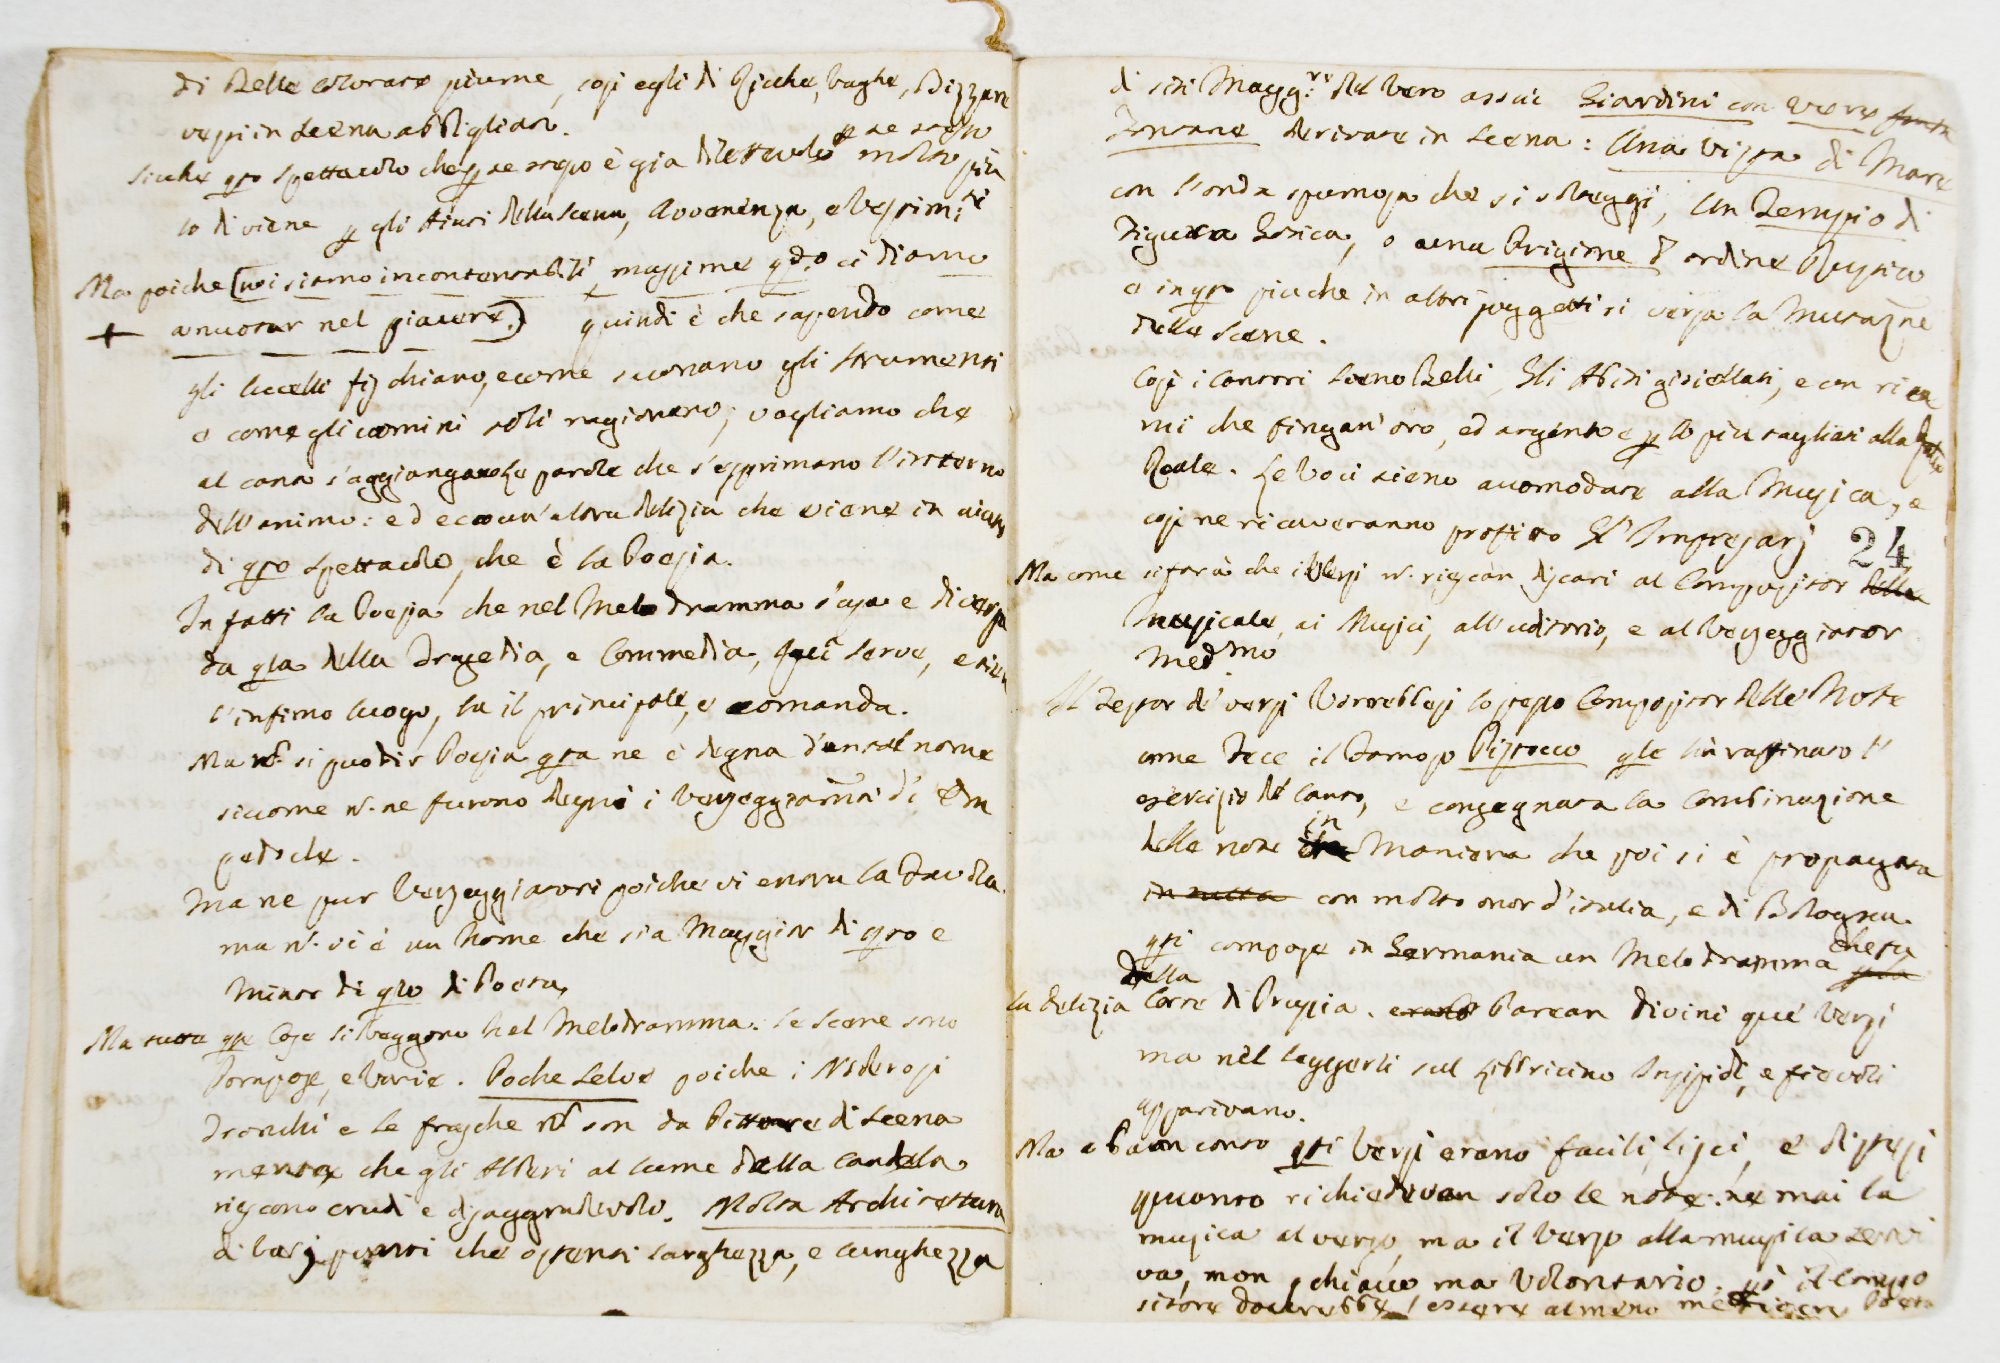 di Belle colorate piume, così egli di Ricche, vaghe, Bizzare
vesti in scena abbigliato.
Sicche qsto spettacolo che p se stesso è gia dilettevole molto più
lo diviene p gli Aiuti della scena, Avvenenza, e Vestimti
Ma poiche (noi siamo incontentabili, massime qdo ci diamo
+ a nuotar nel piacere.) quindi è che sapendo come
gli Uccelli fischiano, e come suonano gli strumenti
e come gli uomini soli ragionano; vogliamo che
al canto s'aggiungano le parole che s'esprimano l'interno
dell'animo: ed ecco un'altra delizia che viene in aiuto
di qsto spettacolo, che è la Poesia.
In fatti la Poesia che nel Melodramma s'usa e diversa
da qla della Tragedia, e Commedia, Qui serve, e tien
l'infimo luogo, la il principale, e comanda.
Ma no si puo dir Poesia qsta ne è degna d'un tal nome
siccome n. ne furono degni i Verseggiamti di Em
pedocle.
Ma ne pur Verseggiatori poiche vi entra la Favola.
ma n. vi è un Nome che sia Maggior di qsto e
Minor di qlo di Poeta.
Ma tutte qste Cose si veggono nel Melodramma. Le scene sono
Pompose, e Varie. Poche Selve poiche i Noderosi
Tronchi e le frasche no son da Pittore di scena
mentre che gli Alberi al lume della candela
riescono crudi e disaggradevoli. Molta Architettura
di varj punti che ostenti larghezza, e lunghezza
di siti Magg.ri del Vero assai Giardini con vere
Fontane derivate in scena: Una vista di Mare
con l'onda spumosa che si solleggi, Un Tempio di
Figura Gotica, o una Prigione d'ordine Rustico
e in qsto piu che in altri soggetti si versa la Mutazne
delle Scene.
Così i Cantori sieno Belli, Gli Abiti gioiellati, e con rica
mi che fingan'oro, ed argento e p lo piu tagliati alla
Reale. Le Voci sieno accomodate alla Musica, e
così ne ricaveranno profitto Gl'Impresarj 24
Ma come si farà che i Versi n. riescan discari al Compositor
Musicale, ai Musici, all'uditorio, e al Verseggiator
Medmo
Il Testor de' versi Vorrebbesi lo stesso Compositor delle Note
come Fece il Famoso Pistocco qle hà raffinato l'
esercizio del Canto, e congegnata la Combinazione
delle note in Maniera che poi si è propagata
in tutta con molto onor d'italia, e di Bologna.
qsti compose in Germania un Melodramma che fu
la delizia della Corte di Prussia. Parean divini que' Versi
ma nel leggerli sul Libbricino Insipidi, e fievoli
apparivano.
Ma a buon conto qsti Versi erano facili, lisci, e distesi
quanto richiedevan solo le note: ne mai la
musica al verso, ma il verso alla musica servi
va, non schiavo ma Volontario. il Compo
sitore dovrebbe essere almeno Poeta